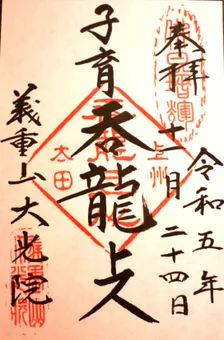 奉拝
令和五年
十一月二十四日
子育呑龍上人
義重山大光院
上州
太田